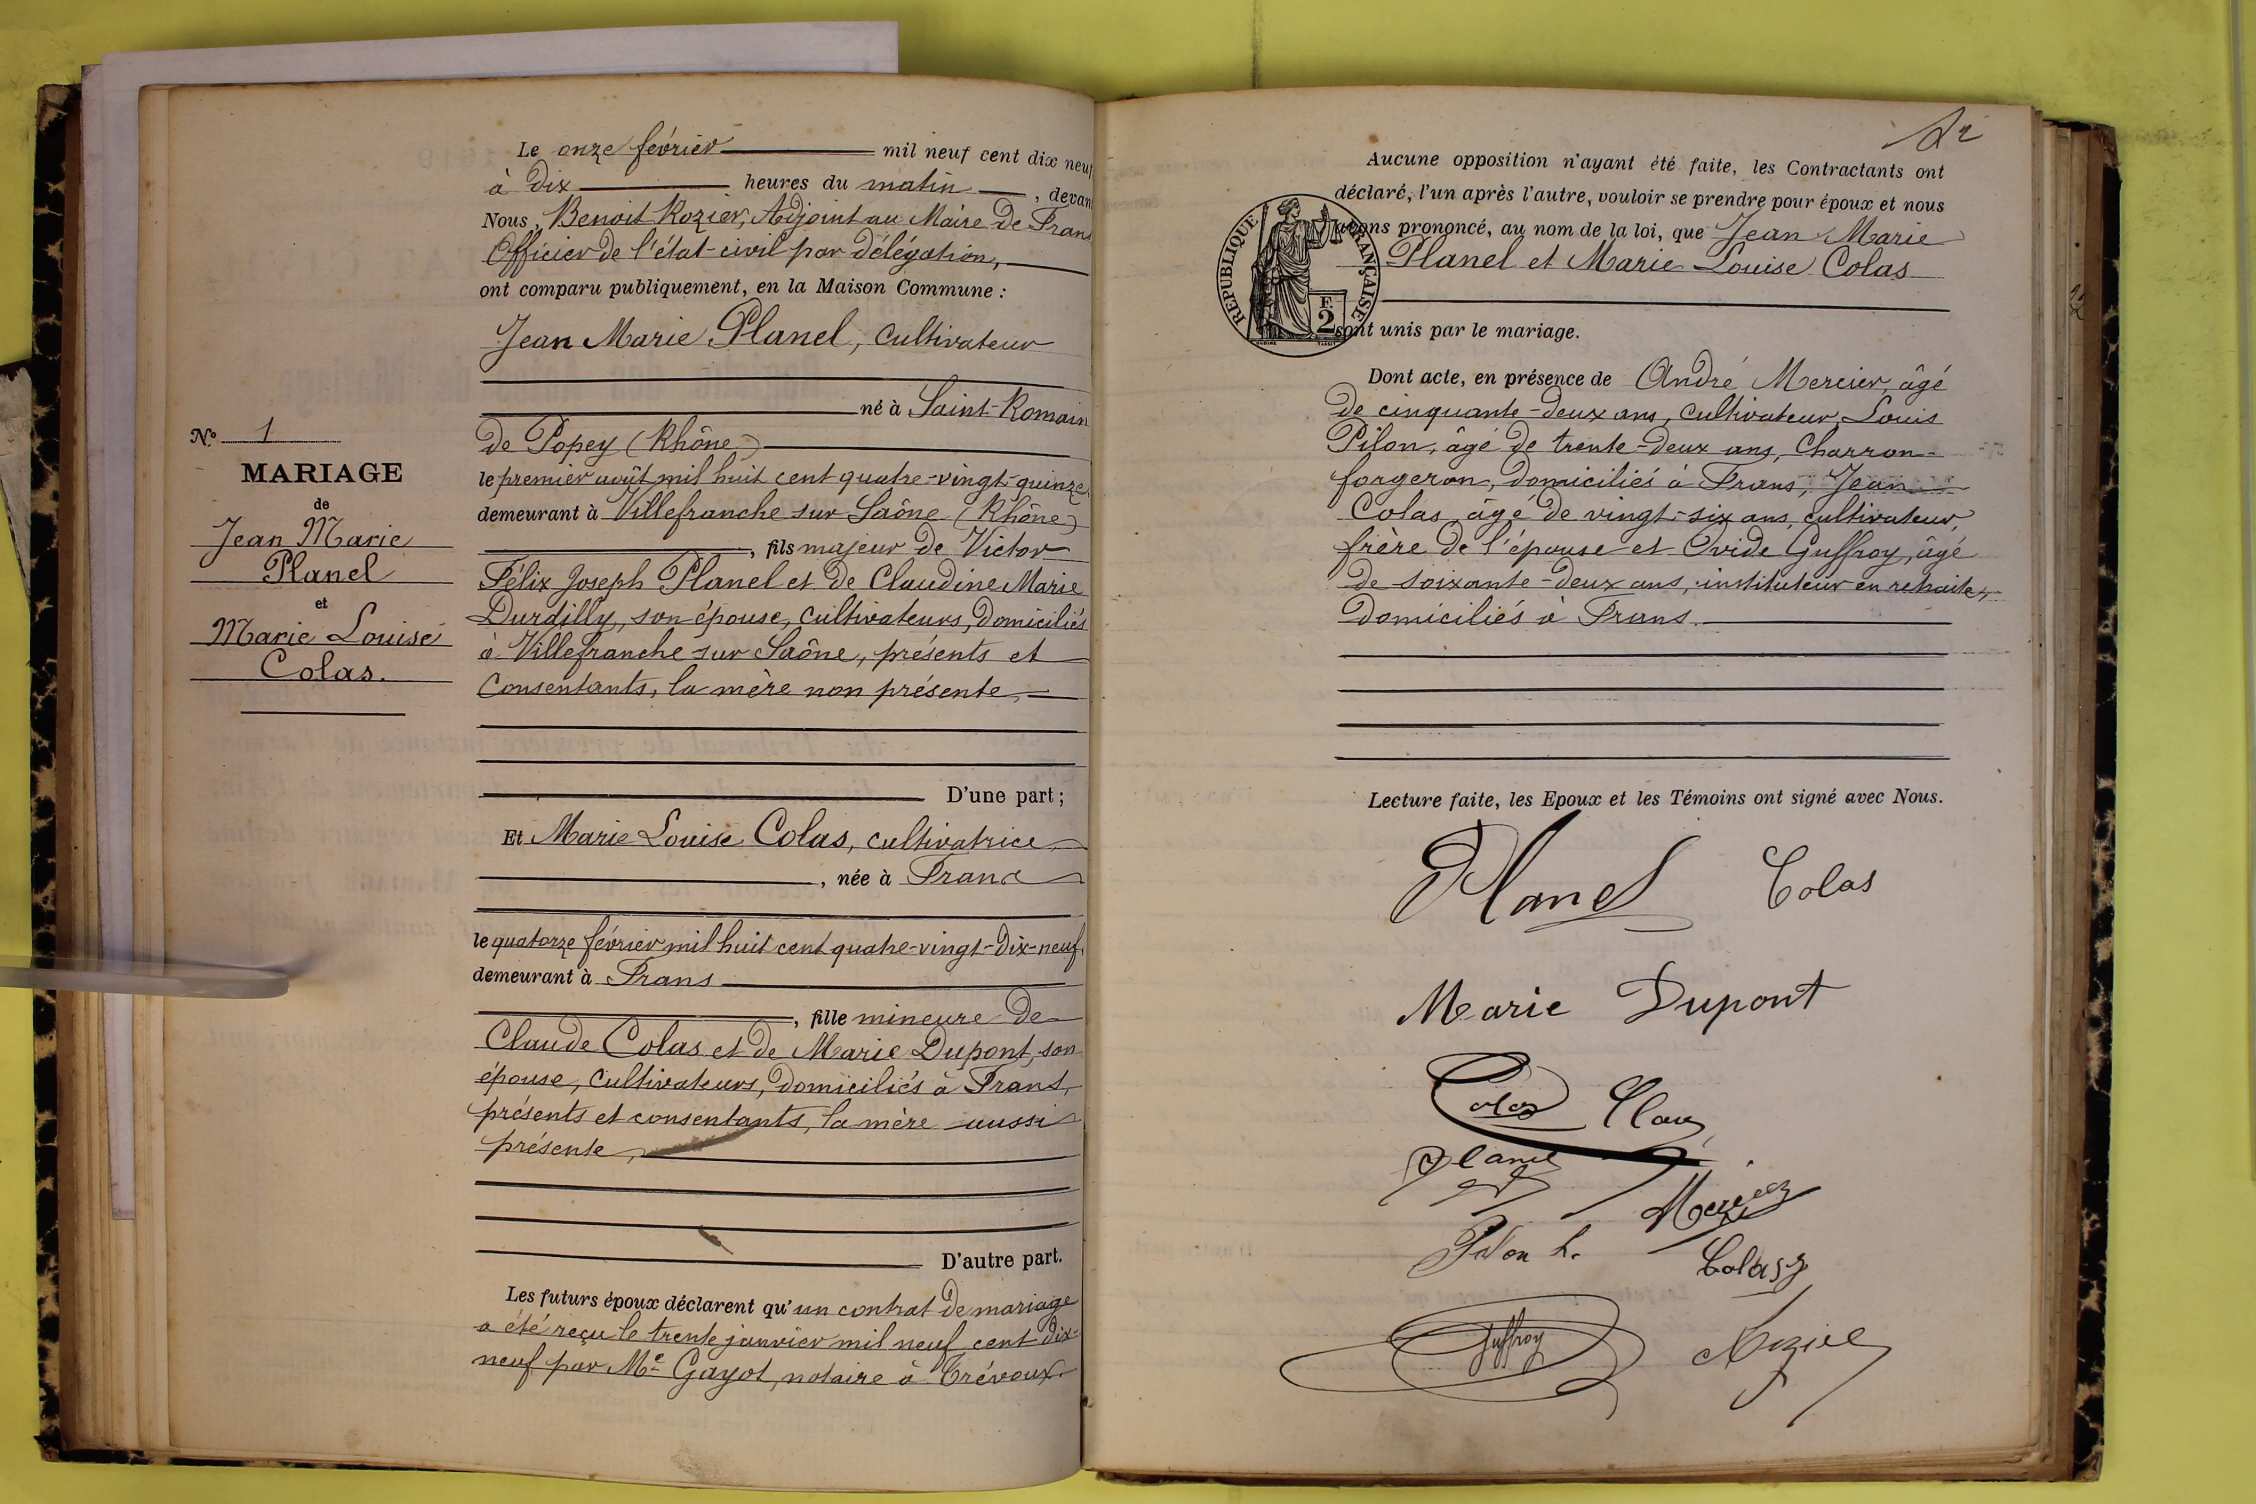 N.° 1
MARIAGE
de
Jean Marie
Planel
et
Marie Louise
Colas.
Le onze février mil neuf cent dix neuf
à dix heures du matin, devan
Nous, Benoit Rozier, Adjoint au Maire de Frans
Officier de l'état-civil par délégation,
ont comparu publiquement, en la Maison Commune :
Jean Marie Planel, cultivateur
né à Saint-Romain
de Popey (Rhône)
le premier août mil huit cent quatre-vingt-quinze,
demeurant à Villefranche sur Saône (Rhône)
, fils majeur de Victor
Félix Joseph Planel et de Claudine Marie
Durdilly, son épouse, cultivateurs, domiciliés
à Villefranche sur Saône, présents et
consentants, la mère non présente,
D'une part ;
Et Marie Louise Colas, cultivatrice
, née à Frans
le quatorze février mil huit cent quatre-vingt-dix-neuf,
demeurant à Frans
, fille mineure de
Claude Colas et de Marie Dupont, son
épouse, cultivateurs, domiciliés à Frans,
présents et consentants, la mère aussi
présente,
D'autre part.
Les futurs époux déclarent qu'un contrat de mariage
a été reçu le trente janvier mil neuf cent dix-
neuf par Me Gayot, notaire à Trévoux.
Aucune opposition n'ayant été faite, les Contractants ont
déclaré, l'un après l'autre, vouloir se prendre pour époux et nous
avons prononcé, au nom de la loi, que Jean Marie
Planel et Marie Louise Colas
RÉPUBLIQUE FRANÇAISE
F.
2
sont unis par le mariage.
Dont acte, en présence de André Mercier, âgé
de cinquante-deux ans, cultivateur, Louis
Pilon, âgé de trente-deux ans, charron-
forgeron, domiciliés à Frans, Jean
Colas âgé de vingt-six ans, cultivateur,
frère de l'épouse et Ovide Guffroy, âgé
de soixante-deux ans, instituteur en retraite,
domiciliés à Frans.
Lecture faite, les Epoux et les Témoins ont signé avec Nous.
Planel Colas
Marie Dupont
Colas Clau
Planel
Mercier
Pilon L.
Colas J
Guffroy Rozier